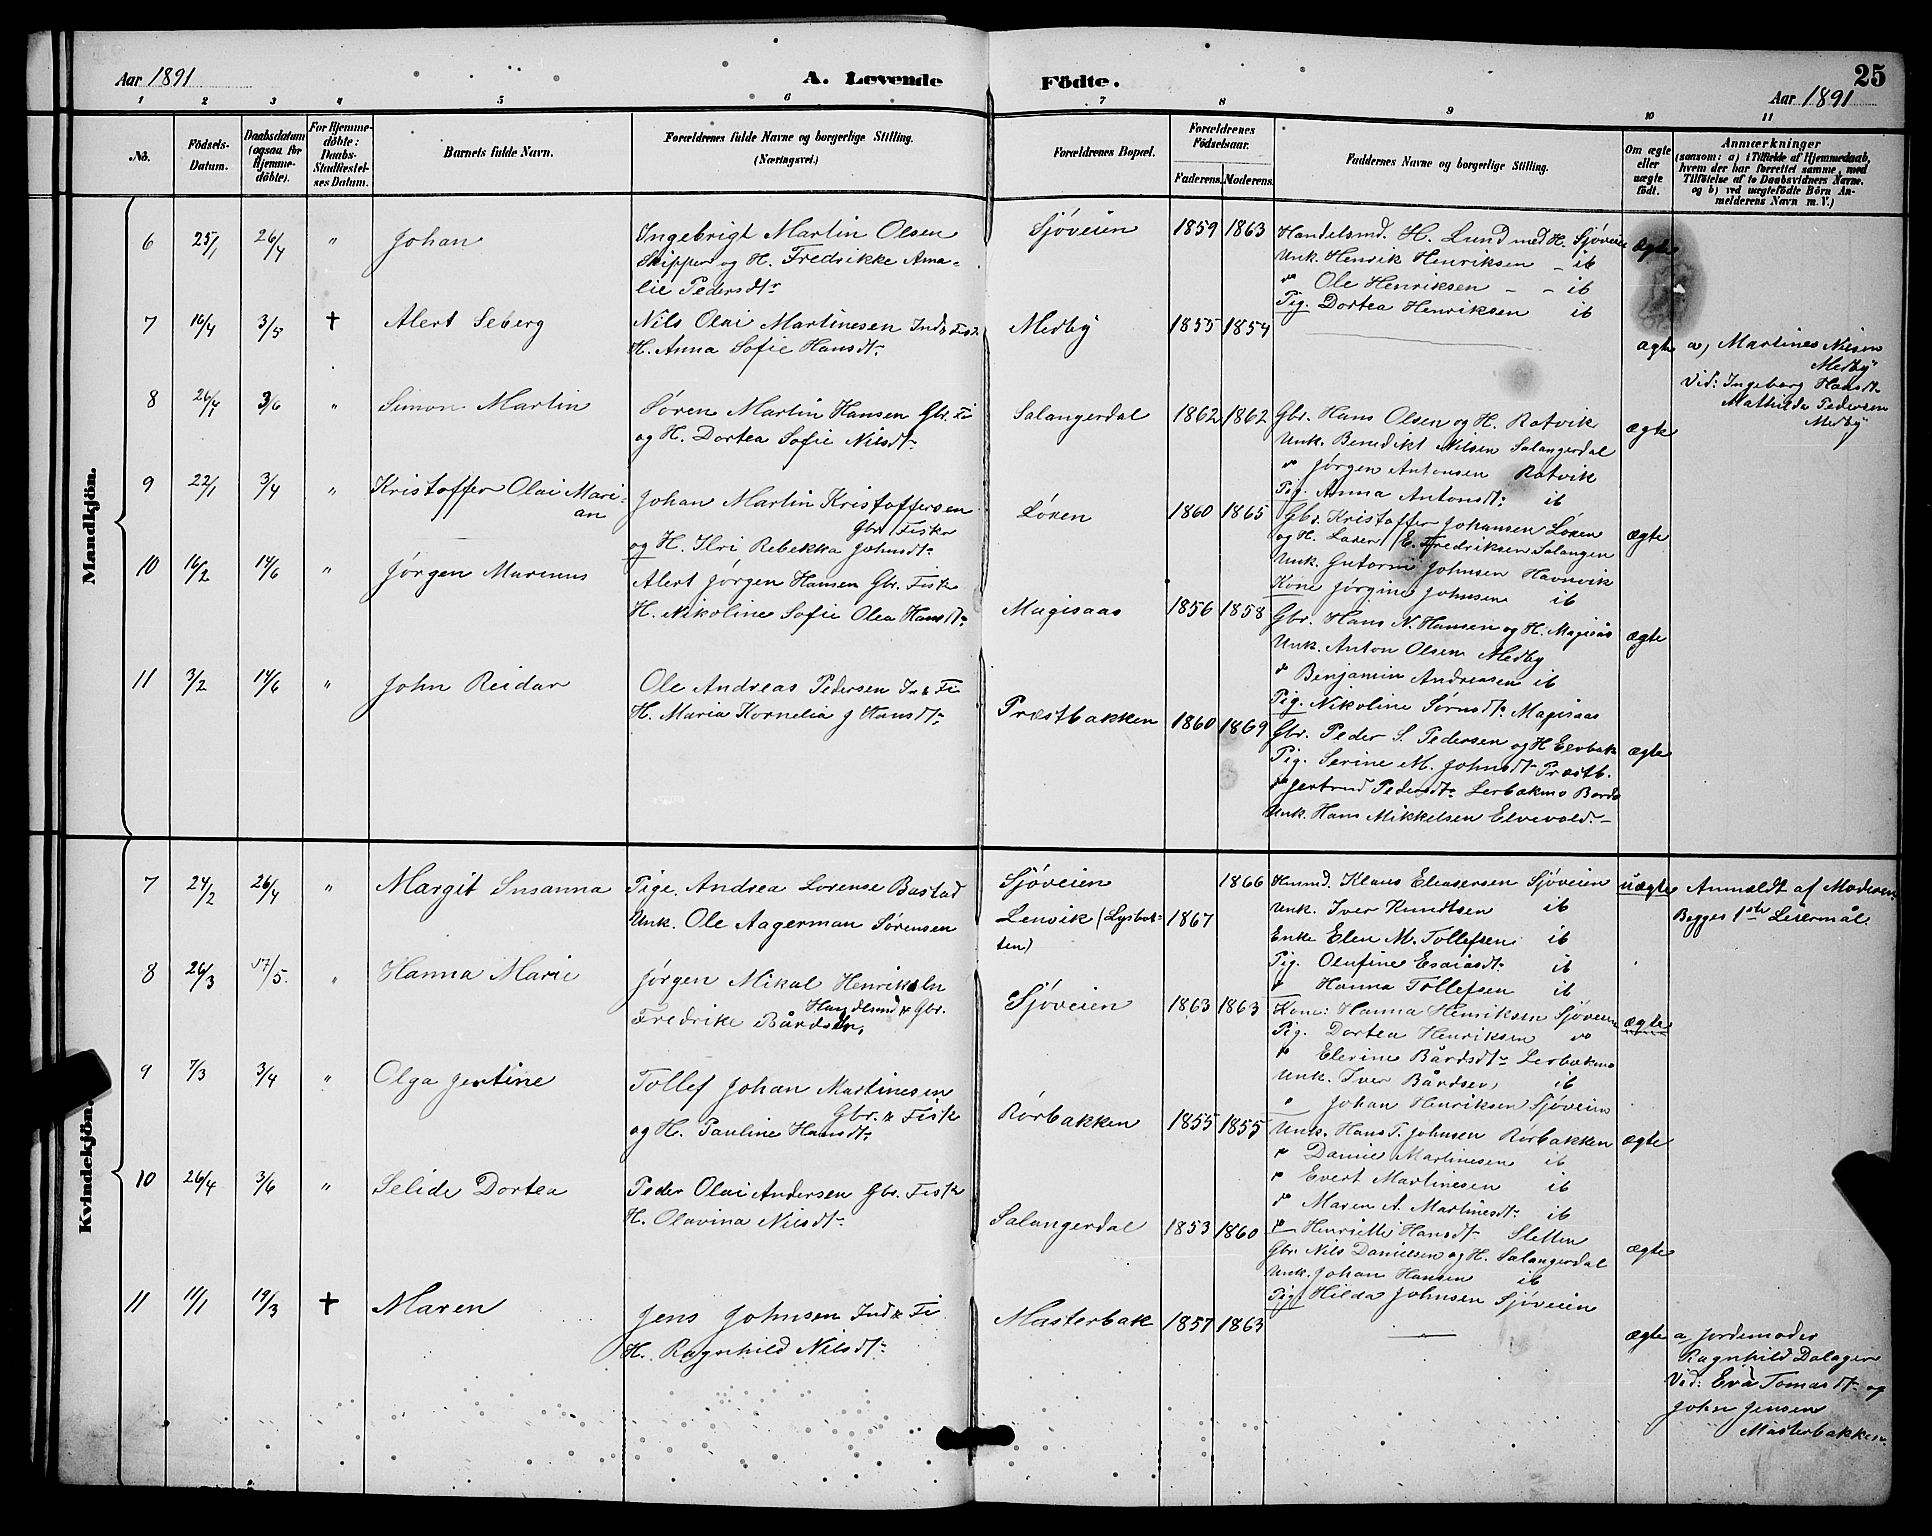 Aar 1891
A. Levende
Födte.
Aar 1891
25
1 2 3 4 5 6 7 8 9 10 11
No.
Födsels-Datum.
Daabsdatum (ogsaa for Hjemme-döbte).
For Hjemme-döbte: Daabs-Stadfæstel-ses Datum.
Barnets fulde Navn.
Forældrenes fulde Navne og borgerlige Stilling.
(Næringsvei.)
Forældrenes Bopæl.
Forældrenes Födselsaar.
Faderens. Moderens.
Faddernes Navne og borgerlige Stilling.
Om ægte eller uægte födt.
Anmærkninger
(saasom: a) i Tilfælde af Hjemmedaab, hvem der har forrettet samme, med Tilföielse af to Daabsvidners Navne, og b) ved uægtefödte Börn An-melderens Navn m. V.)
Mandkjön.
6 25/1 26/4 " Johan
Ingebrigt Martin Olsen
Skipper og H. Fredrikke Ama-
lie Pedersdtr
Sjøveien 1859 1863
Handelsmd. H. Lund med H. Sjøveien
Unk. Henrik Henriksen - ib
do Ole Henriksen - - ib
Pig. Dortea Henriksen ib
ægte
7 16/4 3/5 † Alert Seberg
Nils Olai Martinesen Ind & Fisk
H. Anna Sofie Hansdtr
Medby 1855 1854
ægte
a) Martines Nilsen
Medby
Vid: Ingeborg Hansdtr
Mathilde Pedersen
Medby
8 26/4 3/6 " Simon Martin
Søren Martin Hansen Gbr. Fi
og H. Dortea Sofie Nilsdtr
Salangerdal 1862 1862
Gbr. Hans Olsen og H. Rotvik
Unk. Benedikt Nilsen Salangerdal
do Jørgen Antonsen Rotvik
Pig. Anna Antonsdtr ib
ægte
9 22/1 3/4 " Kristoffer Olai Mari-
an
Johan Martin Kristoffersen
Gbr. Fisker
og H. Ilri Rebekka Johnsdtr
Løxen 1860 1865
Gbr. Kristoffer Johansen Løxen
og H. Laver E. Fredriksen Salangen
Unk. Gutorm Johnsen Havnvik
Kone Jørgine Johnsen ib
ægte
10 16/2 14/6 " Jørgen Marenus
Alert Jørgen Hansen Gbr. Fisk
H. Nikoline Sofie Olea Hansdtr
Magisaas 1856 1858
Gbr. Hans N. Hansen og H. Magisås
Unk. Anton Olsen Medby
do Benjamin Andreasen ib
Pig. Nikoline Sørnsdtr Magisaas
ægte
11 3/2 14/6 " John Reidar
Ole Andreas Pedersen In & Fi
H. Maria Kornelia J Hansdtr
Præstbakken 1860 1869
Gbr. Peder S. Pedersen og H Elvbak
Pig. Serine M. Johnsdtr Præstb.
do Jertrud Pedersdtr Lerbækmo Bardo
Unk. Hans Mikkelsen Elvevold.
ægte
Kvindekjön.
7 24/2 26/4 " Margit Susanna
Pige Andrea Lorense Bostad
Unk. Ole Aagerman Sørensen
Sjøveien 1866
Lenvik (Lysbot-
ten) 1867
Husmd. Klaus Eleasersen Sjøveien
Unk. Iver Knudtsen ib
Enke Elen M. Tollefsen ib
Pig. Olufine Esaiasdtr ib
do Hanna Tollefsen ib
uægte
Anmældt af Moderen
Begges 1ste Leiermål.
8 26/3 17/5 " Hanna Marie
Jørgen Mikal Henriksen
Handlsmd & Gbr.
Fredrike Bårdsen
Sjøveien 1863 1863
Kone: Hanna Henriksen Sjøveien
Pig. Dortea Henriksen do
do Elerine Bårdsdtr Lerbækmo
Unk. Iver Bårdsen ib
do Johan Henriksen Sjøveien
ægte
9 7/3 3/4 " Olga Jentine
Tollef Johan Martinesen
Gbr. & Fisk
og H. Pauline Hansdtr
Rørbakken 1855 1855
Unk. Hans T. Johnsen Rørbakken
do Daniel Martinesen ib
do Evert Martinesen ib
do Maren A. Martinesdtr ib
do Henriette Hansdtr Sletten
ægte
10 26/4 3/6 " Selide Dortea
Peder Olai Andersen Gbr. Fisk
H. Olavina Nilsdtr
Salangerdal 1853 1860
Gbr. Nils Danielsen og H. Salangerdal
Unk. Johan Hansen ib
Pig. Hilda Johnsen Sjøveien
ægte
11 11/1 19/3 † Maren
Jens Johnsen Ind & Fi
H. Ragnhild Nilsdtr
Masterbak 1857 1863
ægte
a Jordemoder
Ragnhild Dalager
Vid: Eva Tomasdtr og
John Jensen
Masterbakken